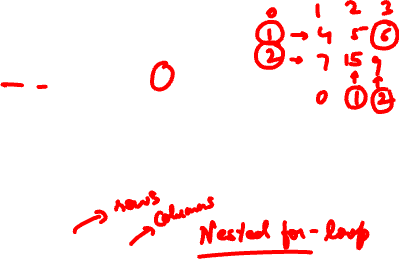 0 1 2 3
1 → 4 5 6
2 → 7 15 9
0 1 2
0
rows
columns
Nested for-loop